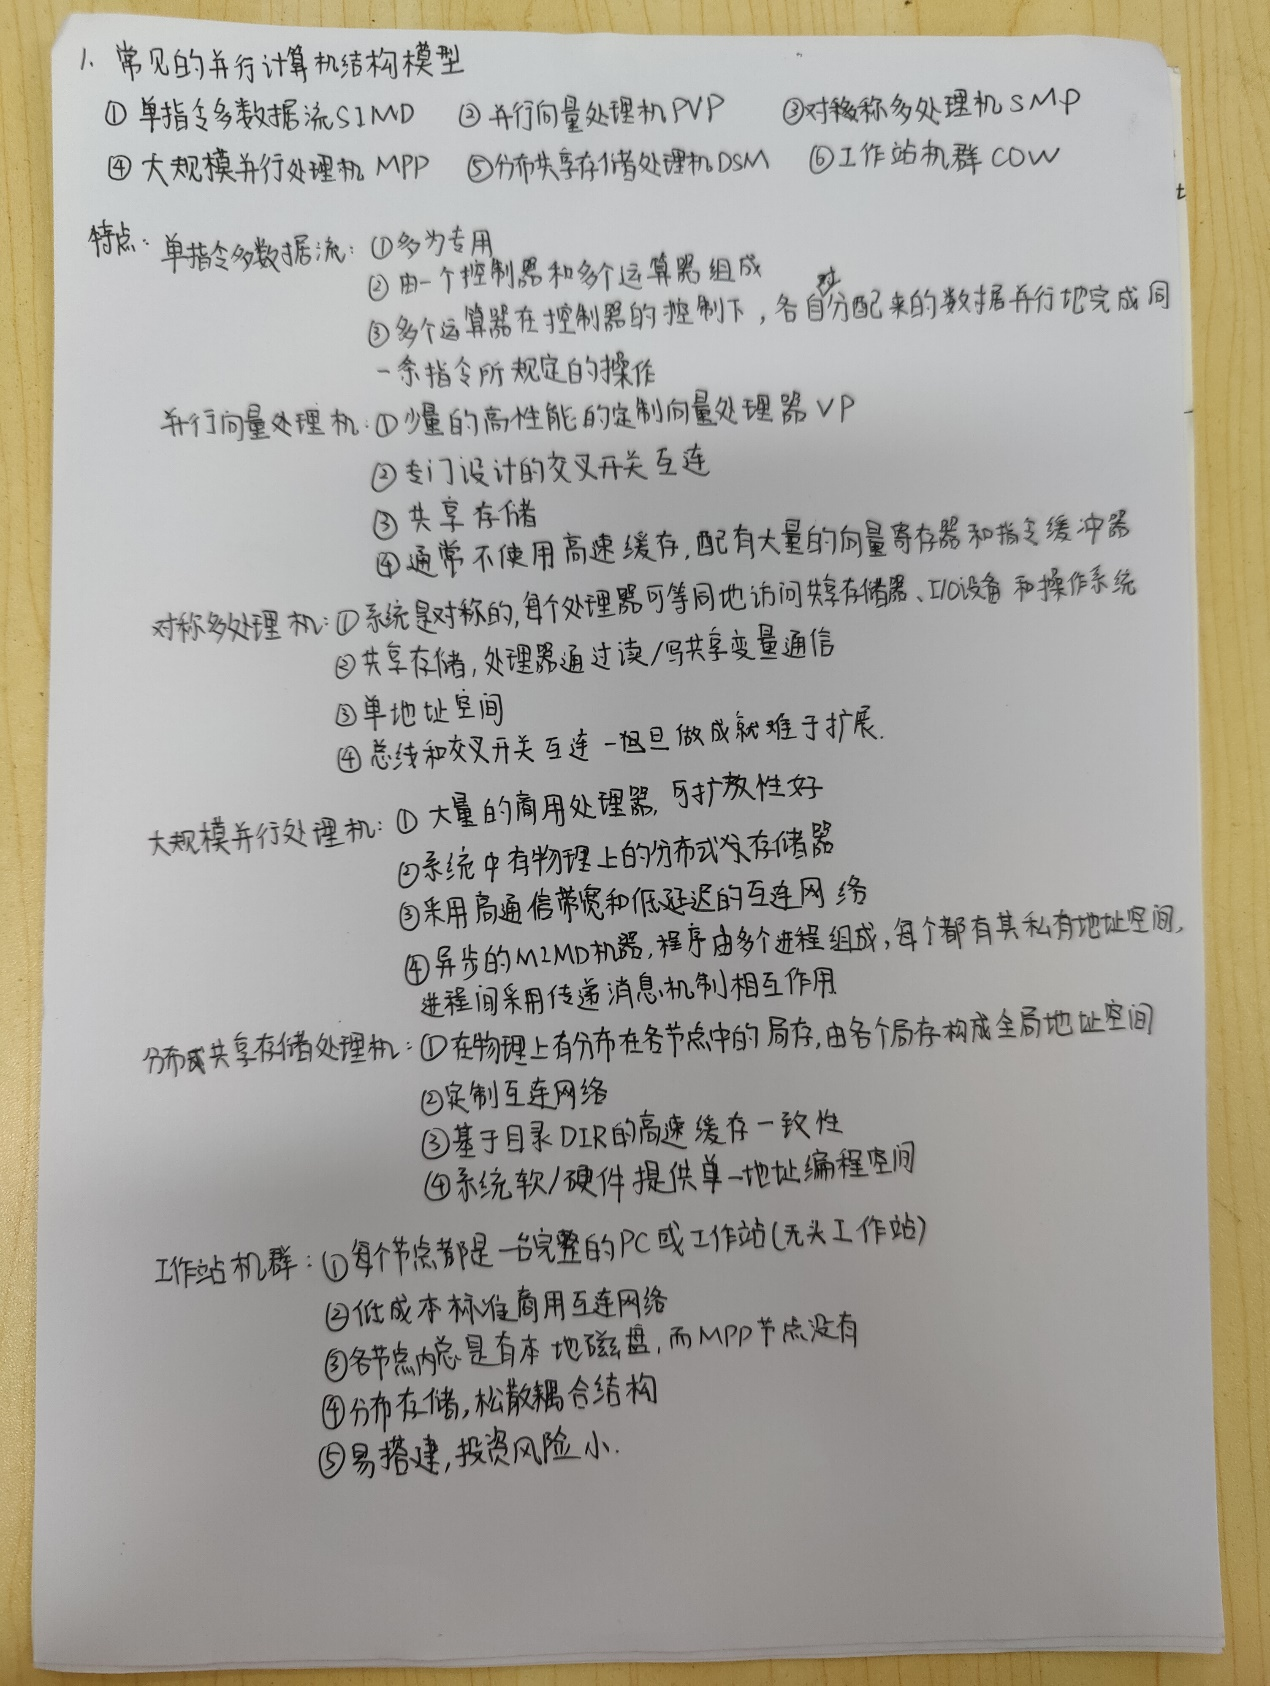 1. 常见的并行计算机结构模型
① 单指令多数据流SIMD ② 并行向量处理机PVP ③对称多处理机SMP
④ 大规模并行处理机 MPP ⑤分布共享存储处理机DSM ⑥工作站机群COW
特点: 单指令多数据流: ①多为专用
②由一个控制器和多个运算器组成
③多个运算器在控制器的控制下,各自对分配来的数据并行地完成同
一条指令所规定的操作
并行向量处理机:①少量的高性能的定制向量处理器VP
②专门设计的交叉开关互连
③共享存储
④通常不使用高速缓存,配有大量的向量寄存器和指令缓冲器
对称多处理机:①系统是对称的,每个处理器可等同地访问共享存储器、I/O设备和操作系统
②共享存储,处理器通过读/写共享变量通信
③单地址空间
④总线和交叉开关互连一但做成就难于扩展.
大规模并行处理机:① 大量的商用处理器,可扩放性好
②系统中有物理上的分布式存储器
③采用高通信带宽和低延迟的互连网络
④异步的MIMD机器,程序由多个进程组成,每个都有其私有地址空间,
进程间采用传递消息机制相互作用
分布式共享存储处理机:①在物理上有分布在各节点中的局存,由各个局存构成全局地址空间
②定制互连网络
③基于目录DIR的高速缓存一致性
④系统软/硬件提供单一地址编程空间
工作站机群:①每个节点都是一台完整的PC或工作站(无头工作站)
②低成本标准商用互连网络
③各节点内总是有本地磁盘,而MPP节点没有
④分布存储,松散耦合结构
⑤易搭建,投资风险小.